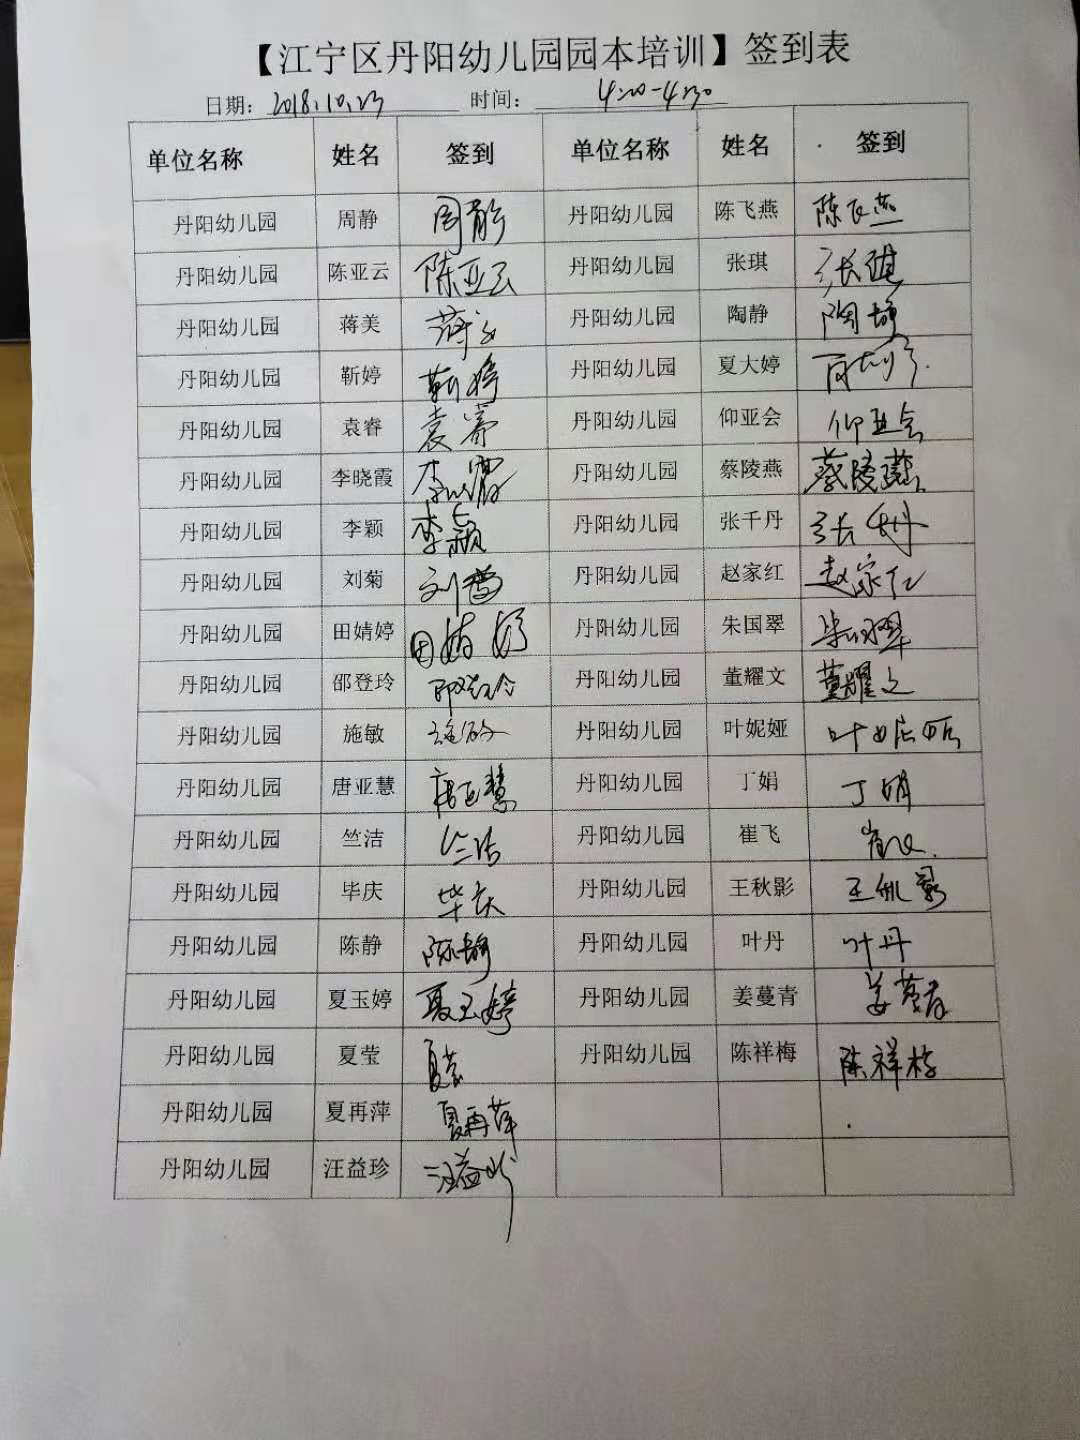 【江宁区丹阳幼儿园园本培训】签到表
日期: 2018.10.23 时间: 4:00-4:30
单位名称 姓名 签到 单位名称 姓名 签到
丹阳幼儿园 周静 周静 丹阳幼儿园 陈飞燕 陈飞燕
丹阳幼儿园 陈亚云 陈亚云 丹阳幼儿园 张琪 张琪
丹阳幼儿园 蒋美 蒋美 丹阳幼儿园 陶静 陶静
丹阳幼儿园 靳婷 靳婷 丹阳幼儿园 夏大婷 夏大婷
丹阳幼儿园 袁睿 袁睿 丹阳幼儿园 仰亚会 仰亚会
丹阳幼儿园 李晓霞 李晓霞 丹阳幼儿园 蔡陵燕 蔡陵燕
丹阳幼儿园 李颖 李颖 丹阳幼儿园 张千丹 张千丹
丹阳幼儿园 刘菊 刘菊 丹阳幼儿园 赵家红 赵家红
丹阳幼儿园 田婧婷 田婧婷 丹阳幼儿园 朱国翠 朱国翠
丹阳幼儿园 邵登玲 邵登玲 丹阳幼儿园 董耀文 董耀文
丹阳幼儿园 施敏 施敏 丹阳幼儿园 叶妮娅 叶妮娅
丹阳幼儿园 唐亚慧 唐亚慧 丹阳幼儿园 丁娟 丁娟
丹阳幼儿园 竺洁 竺洁 丹阳幼儿园 崔飞 崔飞
丹阳幼儿园 毕庆 毕庆 丹阳幼儿园 王秋影 王秋影
丹阳幼儿园 陈静 陈静 丹阳幼儿园 叶丹 叶丹
丹阳幼儿园 夏玉婷 夏玉婷 丹阳幼儿园 姜蔓青 姜蔓青
丹阳幼儿园 夏莹 夏莹 丹阳幼儿园 陈祥梅 陈祥梅
丹阳幼儿园 夏再萍 夏再萍
丹阳幼儿园 汪益珍 汪益珍